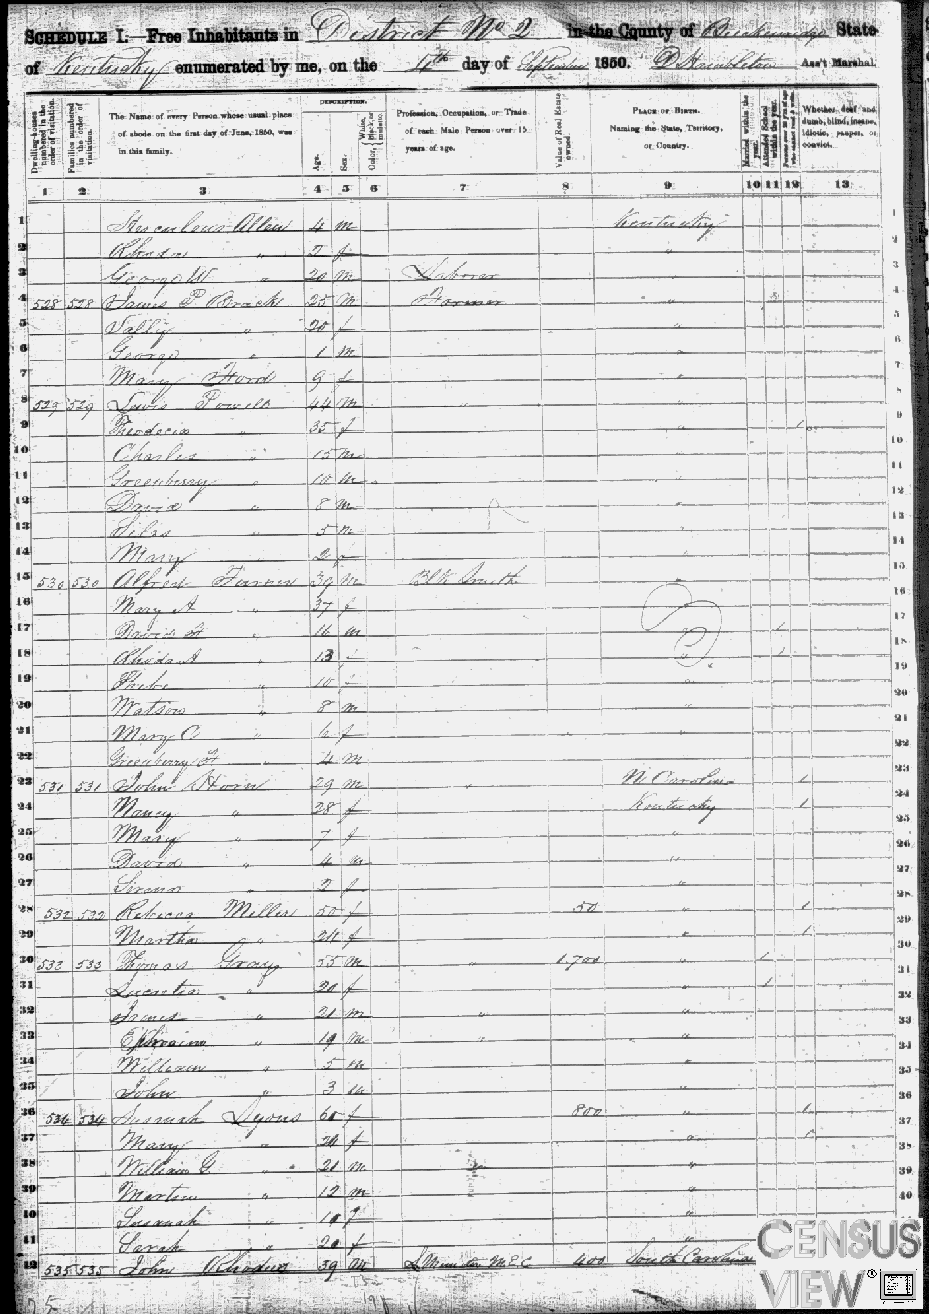 SCHEDULE I.—Free Inhabitants in District No 2 in the County of Breckenridge State
of Kentucky enumerated by me, on the 4th day of September 1850. Ass't Marshal.
DESCRIPTION.
Dwelling-houses numbered in the order of visitation.
Families numbered in the order of visitation.
The Name of every Person whose usual place of abode on the first day of June, 1850, was in this family.
Age.
Sex.
Color, White, black, or mulatto.
Profession, Occupation, or Trade of each Male Person over 15 years of age.
Value of Real Estate owned.
PLACE OF BIRTH. Naming the State, Territory, or Country.
Married within the year.
Attended School within the year.
Whether deaf and dumb, blind, insane, idiotic, pauper, or convict.
1 2 3 4 5 6 7 8 9 10 11 12 13
1 Allen 4 m Kentucky 1
2 Rhoda " 2 f " 2
3 George W " 20 m Laborer " 3
4 528 528 James P Brack 25 m Farmer " 4
5 Sally " 20 f " 5
6 George " 1 m " 6
7 Mary Ford 9 f " 7
8 529 529 Lewis Powell 44 m " " 8
9 Theodocia " 35 f " 1 9
10 Charles " 15 m " 10
11 Greenberry " 10 m " 11
12 David " 8 m " 12
13 Silas " 5 m " 13
14 Mary " 2 f " 14
15 530 530 Alfred 39 m Blk Smith " 15
16 Mary A " 37 f " 16
17 David " 16 m " 1 17
18 Rhoda A " 13 f " 1 18
19 Phebe " 10 f " 19
20 Watson " 8 m " 20
21 Mary C " 6 f " 21
22 Greenberry " 4 m " 22
23 531 531 John Horn 29 m " N Carolina 1 23
24 Nancy " 28 f Kentucky 1 25
25 Mary " 7 f " 26
26 David " 4 m " 27
27 " 2 f " 28
28 532 532 Rebecca Miller 50 f 50 " 1 29
29 Martha " 24 f " 1 30
30 533 533 Thomas Gray 55 m " 1.700 " 1 31
31 Lucretia " 20 f " 1 32
32 James " 21 m " " 33
33 Ephraim " 19 m " " 34
34 William " 5 m " 35
35 John " 3 m " 36
36 534 534 Susanah Lyons 60 f 800 " 1 37
37 Mary " 24 f " 1 38
38 William G. " 21 m " " 39
39 Martin " 12 m " 40
40 Susanah " 10 f "
41 Sarah " 20 f "
42 535 535 John Rhodes 39 m Minister M.E.C 400 South Carolina
CENSUS
VIEW®